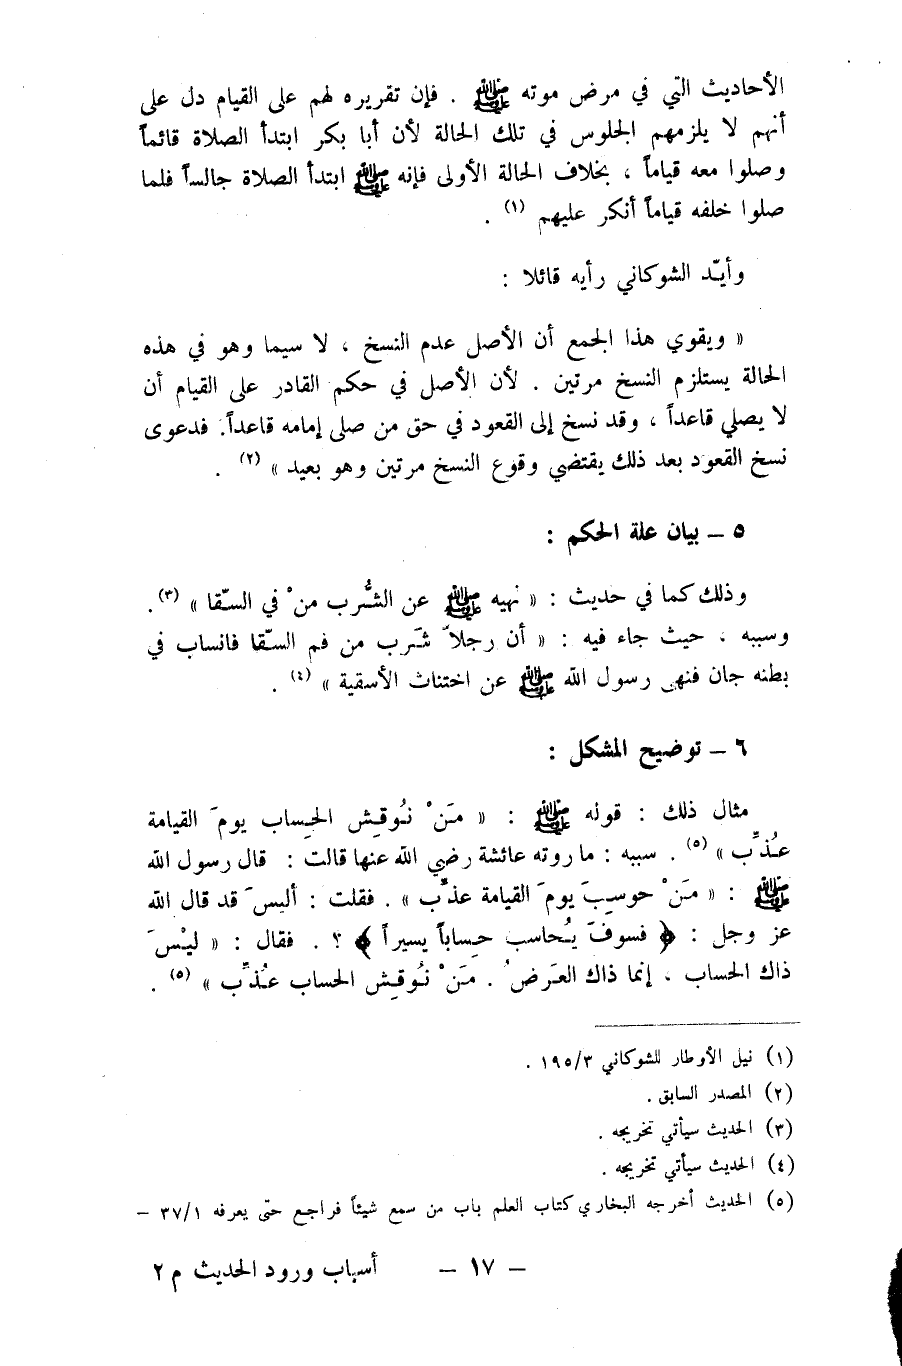 الأحاديث التي في مرض موته ﷺ . فإن تقريره لهم على القيام دل على
أنهم لا يلزمهم الجلوس في تلك الحالة لأن أبا بكر ابتدأ الصلاة قائماً
وصلوا معه قياماً ، بخلاف الحالة الأولى فإنه ﷺ ابتدأ الصلاة جالساً فلما
صلوا خلفه قياماً أنكر عليهم (١) .
وأيّد الشوكاني رأيه قائلا :
« ويقوي هذا الجمع أن الأصل عدم النسخ ، لا سيما وهو في هذه
الحالة يستلزم النسخ مرتين . لأن الأصل في حكم القادر على القيام أن
لا يصلي قاعداً ، وقد نسخ إلى القعود في حق من صلى إمامه قاعداً. فدعوى
نسخ القعود بعد ذلك يقتضي وقوع النسخ مرتين وهو بعيد » (٢) .
٥ – بيان علة الحكم :
وذلك كما في حديث : « نهيه ﷺ عن الشُّرب منْ في السّقا » (٣).
وسببه ، حيث جاء فيه : « أن رجلاً شَرب من فم السّقا فانساب في
بطنه جان فنهى رسول الله ﷺ عن اختناث الأسقية » (٤) .
٦ – توضيح المشكل :
مثال ذلك : قوله ﷺ : « مَنْ نُوقِش الحِساب يومَ القيامة
عُذِّب » (٥) . سببه : ما روته عائشة رضي الله عنها قالت : قال رسول الله
ﷺ : « مَنْ حوسِبَ يومَ القيامة عذّب » . فقلت : أليسَ قد قال الله
عز وجل : ﴿ فسوفَ يُحاسب حِساباً يسيراً ﴾ ؟ . فقال : « ليْسَ
ذاك الحساب ، إنما ذاك العَرضُ . مَنْ نُوقِش الحساب عُذِّب » (٥) .
(١) نيل الأوطار للشوكاني ١٩٥/٣ .
(٢) المصدر السابق .
(٣) الحديث سيأتي تخريجه .
(٤) الحديث سيأتي تخريجه .
(٥) الحديث أخرجه البخاري كتاب العلم باب من سمع شيئاً فراجع حتى يعرفه ٣٧/١ –
– ١٧ – أسباب ورود الحديث م ٢